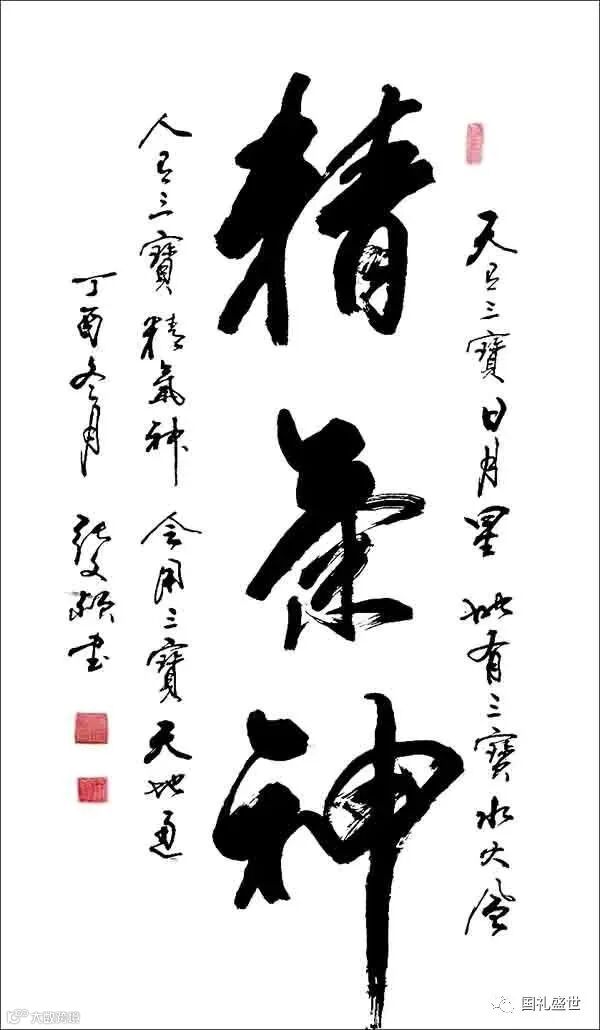 天有三寶日月星 地有三寶水火風
精氣神
人有三寶精氣神 会用三寶天地通
丁酉冬月 書
大数跨境
国礼盛世